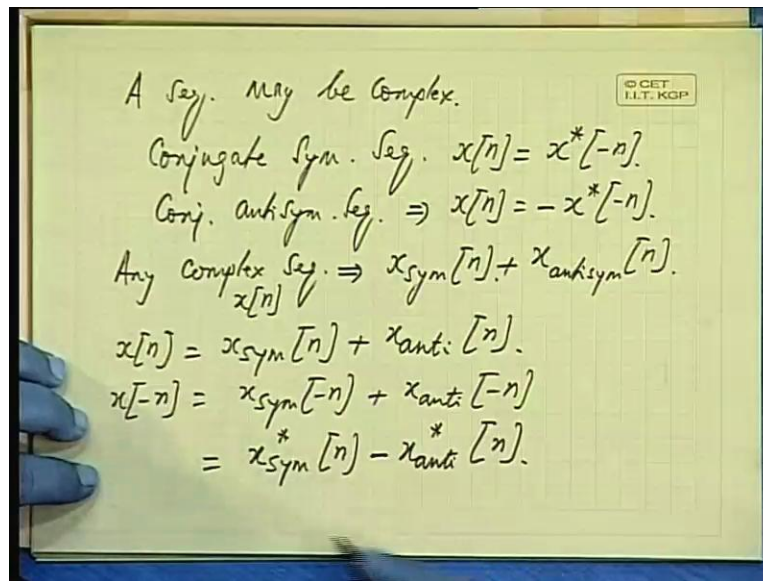 A Seq. may be Complex.
© CET
I.I.T. KGP
Conjugate Sym. Seq. x[n] = x*[-n].
Conj. antisym. Seq. ⇒ x[n] = - x*[-n].
Any Complex Seq. ⇒ x_sym[n] + x_antisym[n].
x[n]
x[n] = x_sym[n] + x_anti[n].
x[-n] = x_sym[-n] + x_anti[-n]
= x*_sym[n] - x*_anti[n].